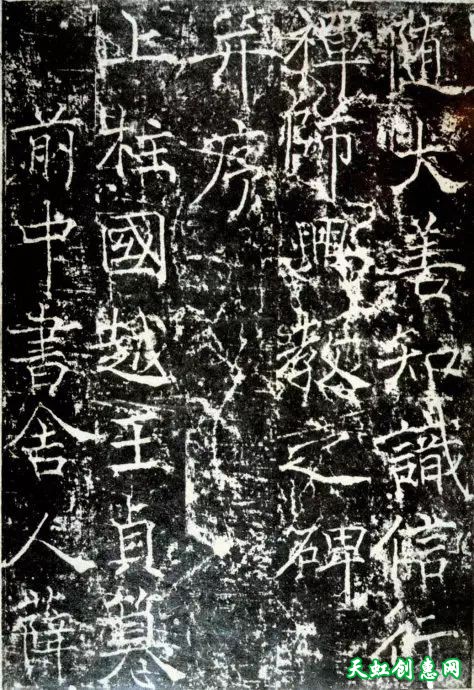 随大善知識信行
禪師興教之碑
并序
上柱國越王貞
前中書舍人薛
天虹创意网